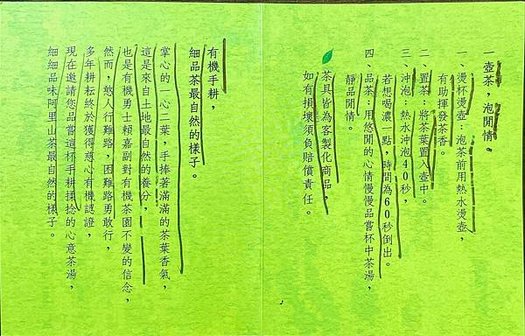 一壺茶，泡閒情。
一、燙杯燙壺：泡茶前用熱水燙壺，
有助揮發茶香。
二、置茶：將茶葉置入壺中。
三、沖泡：熱水沖泡40秒，
若想喝濃一點，時間為60秒倒出。
四、品茶：用悠閒的心情慢慢品嘗杯中茶湯，
靜品閒情。
茶具皆為客製化商品，
如有損壞須負賠償責任。
有機手耕，
細品茶最自然的樣子。
掌心的一心二葉，手捧著滿滿的茶葉香氣，
這是來自土地最自然的養分，
也是有機勇士賴嘉副對有機茶園不變的信念，
然而，敢人行難路，困難路勇敢行，
多年耕耘終於獲得慈心有機認證，
現在邀請您品嘗這杯手耕揉捻的心意茶湯，
細細品味阿里山茶最自然的樣子。